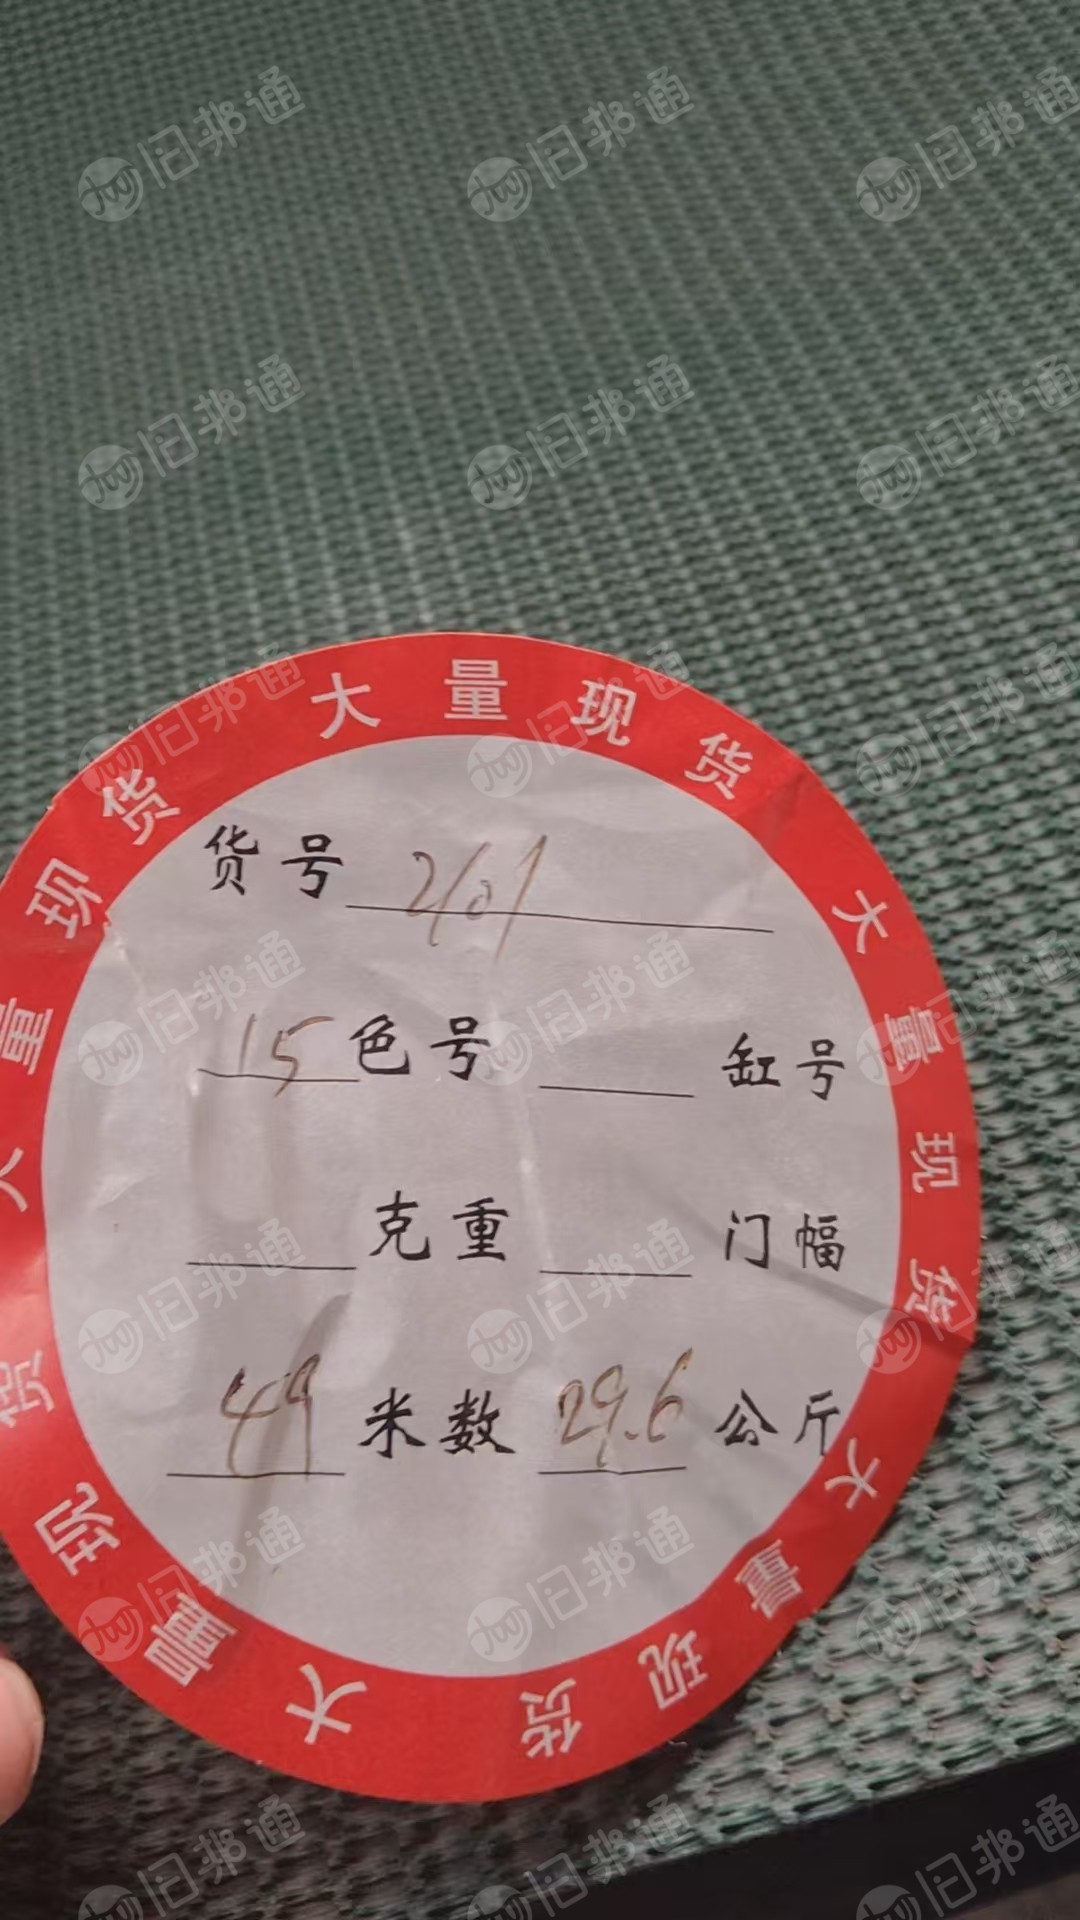 大量现货 大量现货 大量现货 大量现货 大量现货
货号 2101
15 色号 缸号
克重 门幅
49 米数 29.6 公斤
旧邦通